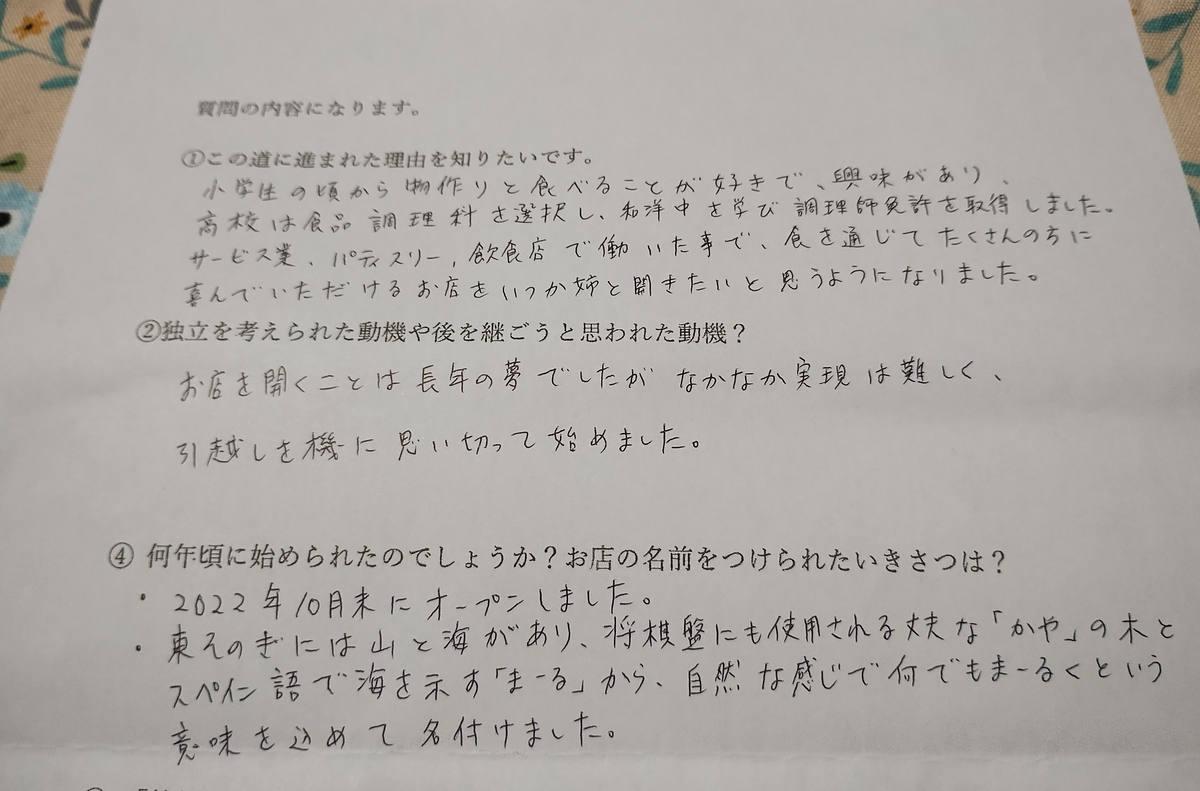 質問の内容になります。
①この道に進まれた理由を知りたいです。
小学生の頃から物作りと食べることが好きで、興味があり、
高校は食品調理科を選択し、和洋中を学び調理師免許を取得しました。
サービス業、パティスリー、飲食店で働いた事で、食を通じてたくさんの方に
喜んでいただけるお店をいつか姉と開きたいと思うようになりました。
②独立を考えられた動機や後を継ごうと思われた動機?
お店を開くことは長年の夢でしたがなかなか実現は難しく、
引越しを機に思い切って始めました。
④ 何年頃に始められたのでしょうか?お店の名前をつけられたいきさつは?
・2022年10月末にオープンしました。
・東そのぎには山と海があり、将棋盤にも使用される丈夫な「かや」の木と
スペイン語で海を示す「まーる」から、自然な感じで何でもまーるくという
意味を込めて名付けました。